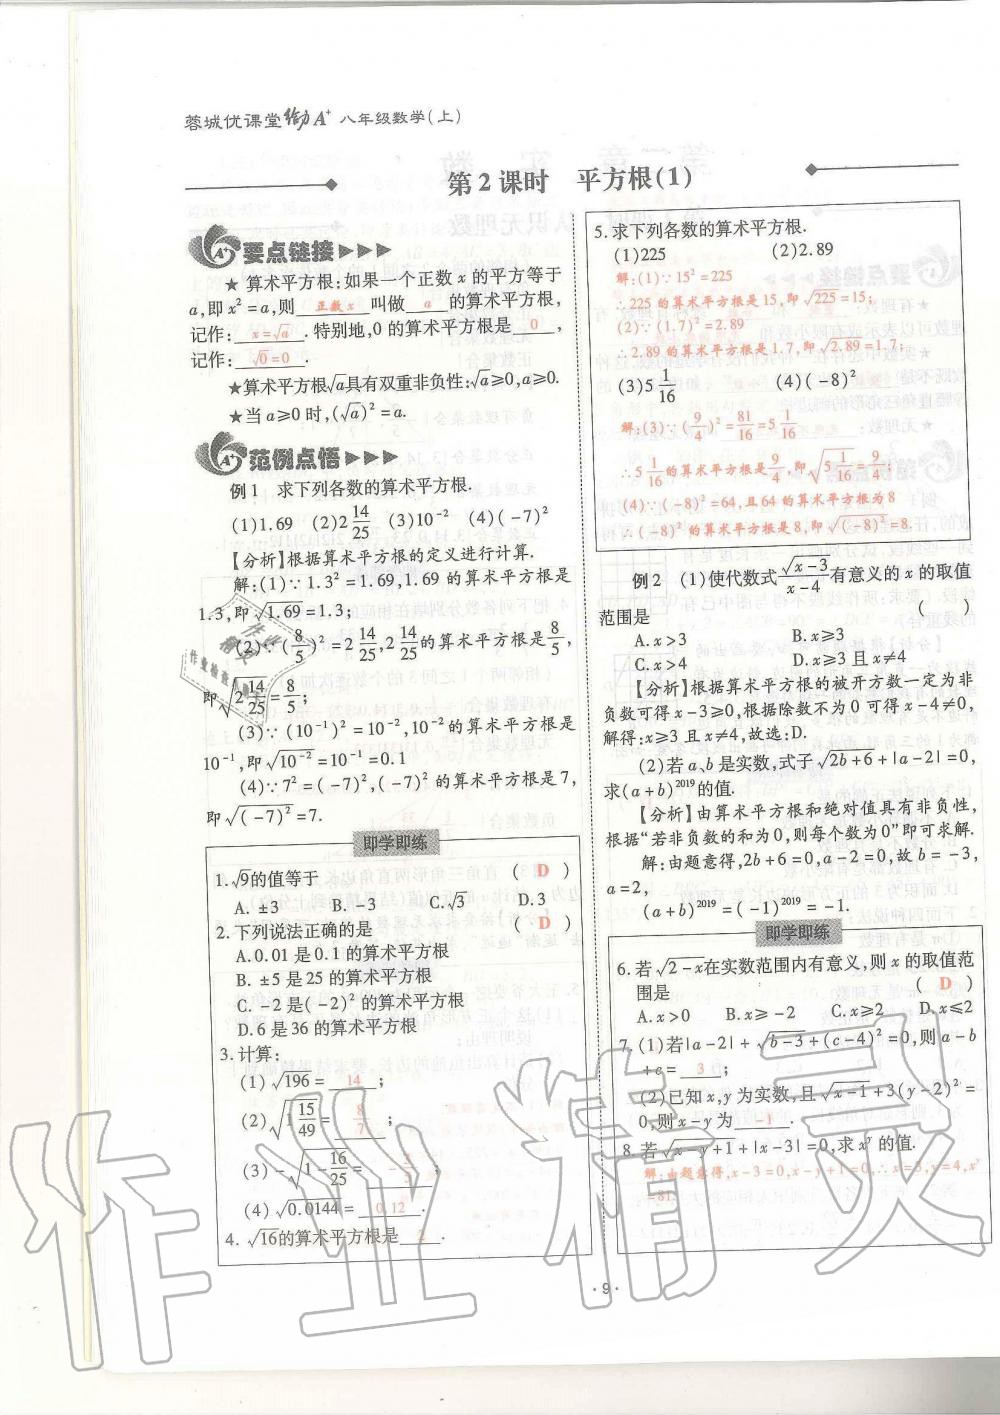 蓉城优课堂 给力A⁺ 八年级数学(上)
第2课时　平方根(1)
要点链接
★算术平方根:如果一个正数x的平方等于
a,即x²=a,则 正数x 叫做 a 的算术平方根,
记作: x=√a .特别地,0的算术平方根是 0 ,
记作: √0=0 .
★算术平方根√a具有双重非负性:√a≥0,a≥0.
★当a≥0时,(√a)²=a.
范例点悟
例1　求下列各数的算术平方根.
(1)1.69　(2)2 14/25　(3)10⁻²　(4)(-7)²
【分析】根据算术平方根的定义进行计算.
解:(1)∵1.3²=1.69,1.69的算术平方根是
1.3,即√1.69=1.3;
(2)∵(8/5)²=2 14/25,2 14/25的算术平方根是8/5,
即√(2 14/25)=8/5;
(3)∵(10⁻¹)²=10⁻²,10⁻²的算术平方根是
10⁻¹,即√(10⁻²)=10⁻¹=0.1
(4)∵7²=(-7)²,(-7)²的算术平方根是7,
即√((-7)²)=7.
即学即练
1.√9的值等于　( D )
A.±3　B.-3　C.√3　D.3
2.下列说法正确的是　( D )
A.0.01是0.1的算术平方根
B.±5是25的算术平方根
C.-2是(-2)²的算术平方根
D.6是36的算术平方根
3.计算:
(1)√196= 14 ;
(2)√(1 15/49)= 8/7 ;
(3)-√(1-16/25)= -3/5 ;
(4)√0.0144= 0.12 .
4.√16的算术平方根是 2 .
5.求下列各数的算术平方根.
(1)225　(2)2.89
解:(1)∵15²=225
∴225的算术平方根是15,即√225=15;
(2)∵(1.7)²=2.89
∴2.89的算术平方根是1.7,即√2.89=1.7;
(3)5 1/16　(4)(-8)²
解:(3)∵(9/4)²=81/16=5 1/16
∴5 1/16的算术平方根是9/4,即√(5 1/16)=9/4;
(4)∵(-8)²=64,且64的算术平方根为8
∴(-8)²的算术平方根是8,即√((-8)²)=8.
例2　(1)使代数式√(x-3)/(x-4)有意义的x的取值
范围是　( )
A.x>3　B.x≥3
C.x>4　D.x≥3且x≠4
【分析】根据算术平方根的被开方数一定为非
负数可得x-3≥0,根据除数不为0可得x-4≠0,
解得:x≥3且x≠4,故选:D.
(2)若a、b是实数,式子√(2b+6)+|a-2|=0,
求(a+b)²⁰¹⁹的值.
【分析】由算术平方根和绝对值具有非负性,
根据“若非负数的和为0,则每个数为0”即可求解.
解:由题意得,2b+6=0,a-2=0,故b=-3,
a=2,
(a+b)²⁰¹⁹=(-1)²⁰¹⁹=-1.
即学即练
6.若√(2-x)在实数范围内有意义,则x的取值范
围是　( D )
A.x>0　B.x≥-2　C.x≥2　D.x≤2
7.(1)若|a-2|+√(b-3)+(c-4)²=0,则a-b
+c= 3 ;
(2)已知x,y为实数,且√(x-1)+3(y-2)²=
0,则x-y为 -1 .
8.若√(x-y+1)+|x-3|=0,求xʸ的值.
解:由题意得,x-3=0,x-y+1=0,∴x=3,y=4,xʸ
=81.
·9·
作业精灵